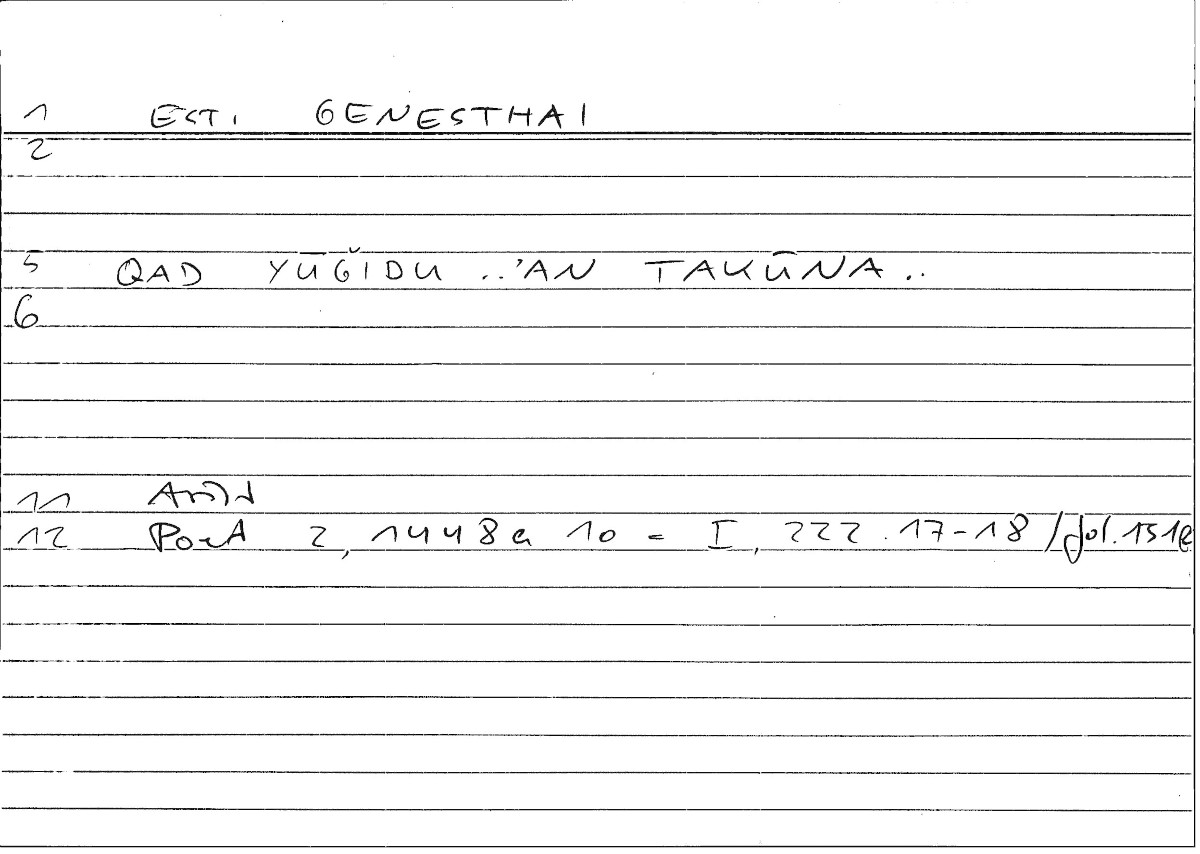 1 ESTI GENESTHAI
2
5 QAD YŪǦIDU ..'AN TAKŪNA..
6
11
12 PoetA 2, 1448a 10 = I, 222.17-18 / fol. 131